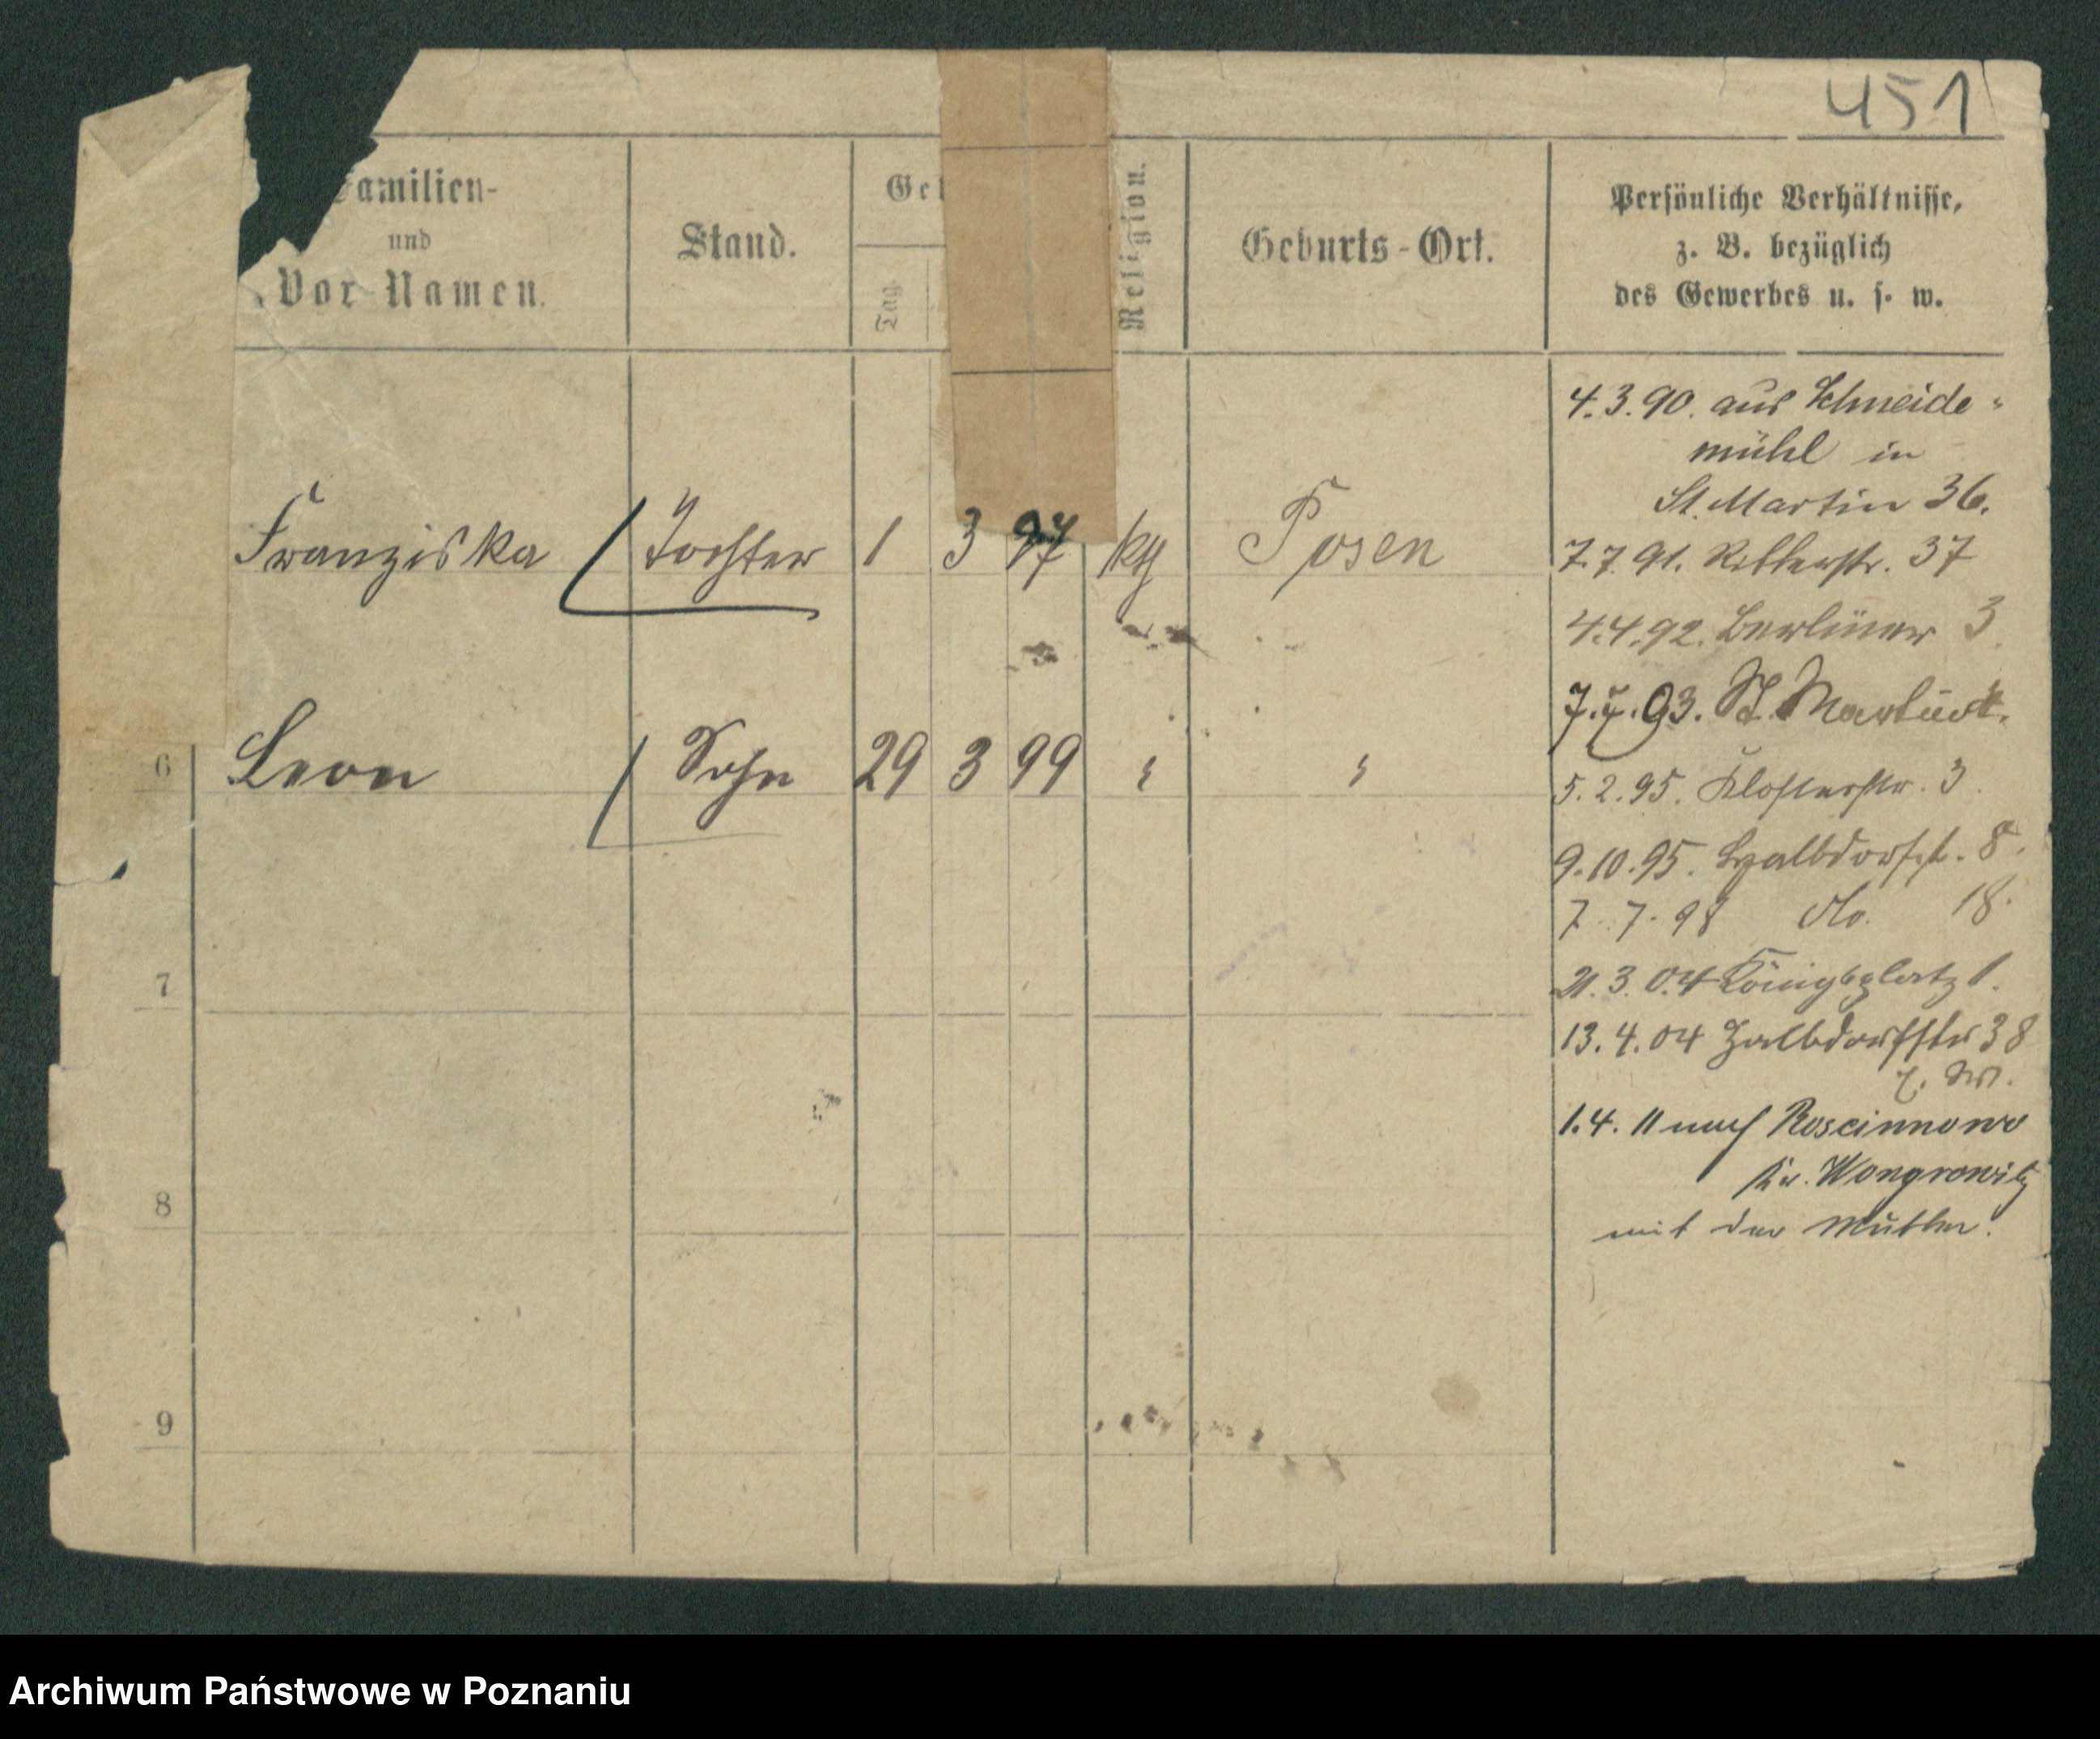 451
Familien-
und
Vor-Namen.
Stand.
Tag.
Religion.
Geburts-Ort.
Persönliche Verhältnisse,
z. B. bezüglich
des Gewerbes u. s. w.
4.3.90. aus Schneide-
mühl in
St. Martin 36.
Franziska Tochter 1 3 97 kth Posen
7.7.91. Ritterstr. 37
4.4.92. Berliner 3
7.7.93. St. Martin
6 Leon Sohn 29 3 99 " "
5.2.95. Klosterstr. 3
9.10.95. Halbdorfst. 8.
7.7.98 do. 18.
7
21.3.04 Königsplatz 1.
13.4.04 Halbdorfstr 38
1.4.11 nach Roscinnowo
8
Kr. Wongrowitz
mit der Mutter.
9
Archiwum Państwowe w Poznaniu